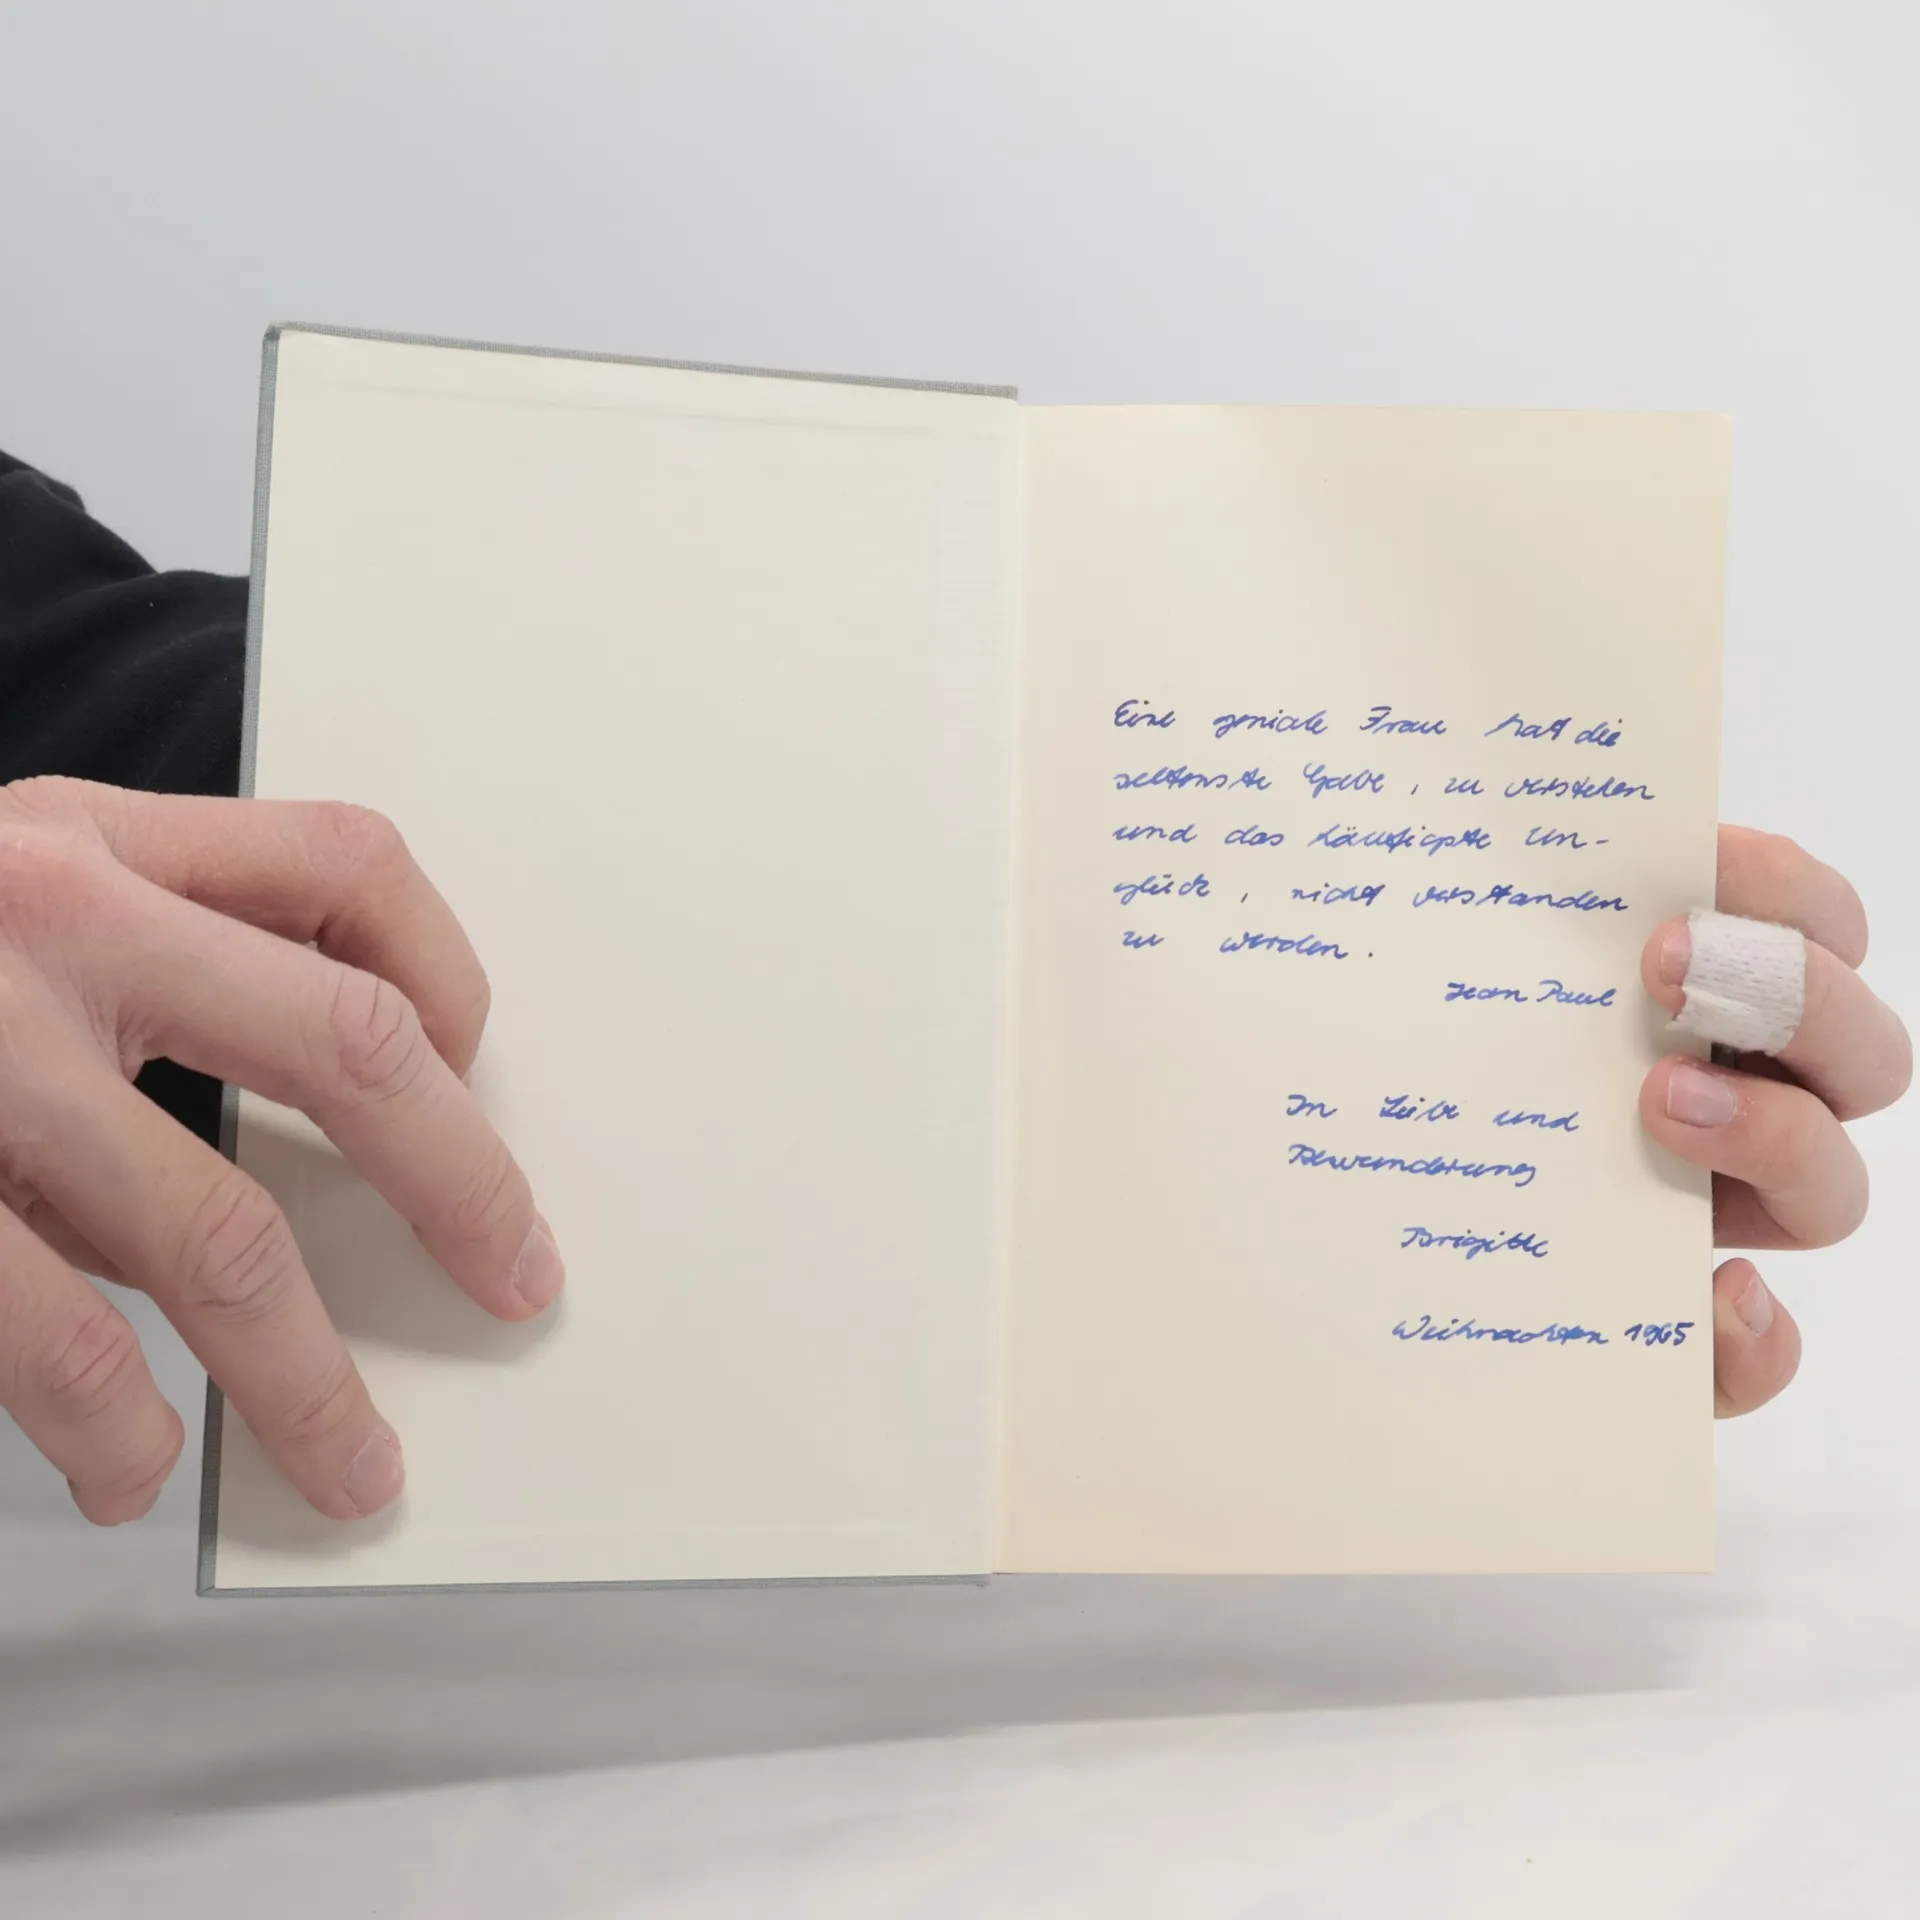 Eine geniale Frau hat die
seltenste Gabe, zu verstehen
und das häufigste Un-
glück, nicht verstanden
zu werden.
Jean Paul
In Liebe und
Bewunderung
Brigitte
Weihnachten 1965